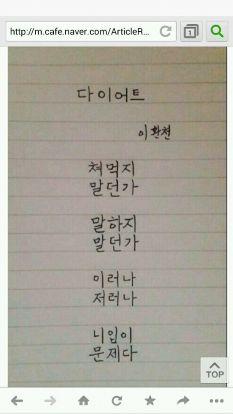 http://m.cafe.naver.com/ArticleR...
1
다이어트
이환천
쳐먹지
말던가
말하지
말던가
이러나
저러나
니입이
문제다
TOP